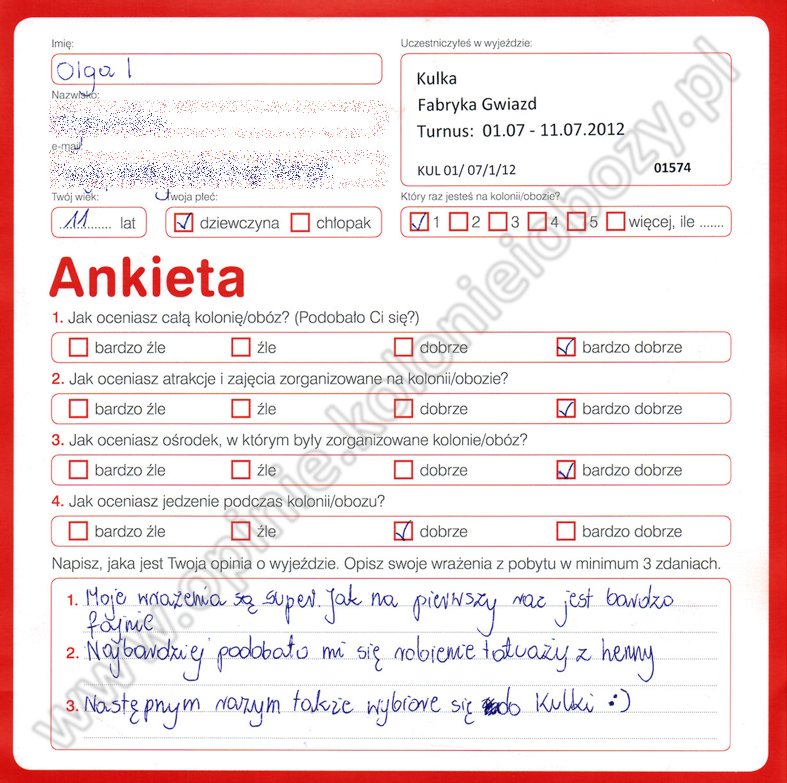 Imię:
Olga I
Nazwisko:
e-mail
Twój wiek:
11 lat
Twoja płeć:
dziewczyna chłopak
Uczestniczyłeś w wyjeździe:
Kulka
Fabryka Gwiazd
Turnus: 01.07 - 11.07.2012
KUL 01/ 07/1/12 01574
Który raz jesteś na kolonii/obozie?
1 2 3 4 5 więcej, ile .......
Ankieta
1. Jak oceniasz całą kolonię/obóz? (Podobało Ci się?)
bardzo źle źle dobrze bardzo dobrze
2. Jak oceniasz atrakcje i zajęcia zorganizowane na kolonii/obozie?
bardzo źle źle dobrze bardzo dobrze
3. Jak oceniasz ośrodek, w którym były zorganizowane kolonie/obóz?
bardzo źle źle dobrze bardzo dobrze
4. Jak oceniasz jedzenie podczas kolonii/obozu?
bardzo źle źle dobrze bardzo dobrze
Napisz, jaka jest Twoja opinia o wyjeździe. Opisz swoje wrażenia z pobytu w minimum 3 zdaniach.
1. Moje wrażenia są super. Jak na pierwszy raz jest bardzo
fajnie
2. Najbardziej podobało mi się robienie tatuaży z henny
3. Następnym razym także wybiore się do Kulki :)
www.opinie.kolonieiobozy.pl